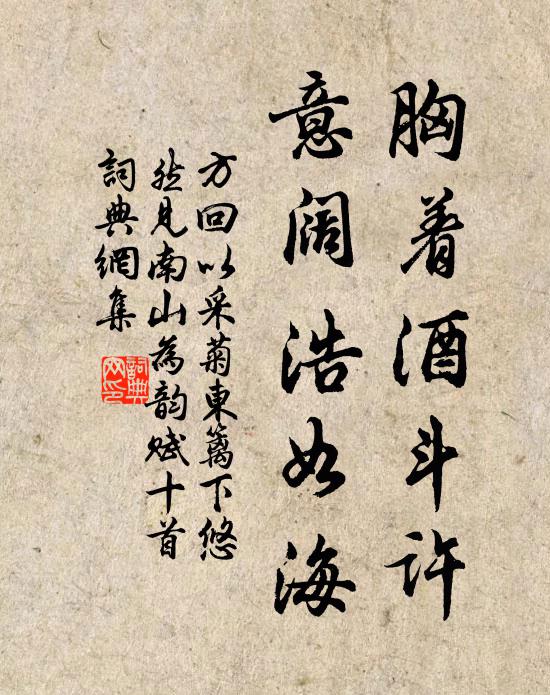 胸着酒斗许
意阔浩如海
方回以采菊東篱下悠
然見南山為韵赋十首
詞典網集
詞典網印